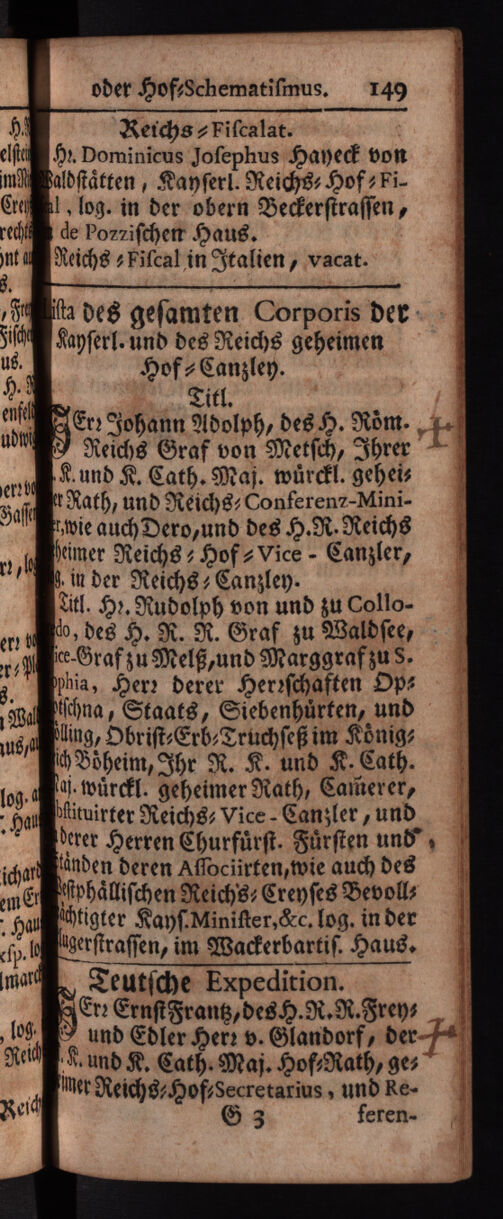 oder Hof-Schematismus. 149
Reichs-Fiscalat.
Hr. Dominicus Josephus Hayeck von
Waldstätten, Kayserl. Reichs-Hof-Fi-
, log. in der obern Beckerstrassen,
de Pozzischen Haus.
Reichs-Fiscal in Italien, vacat.
des gesamten Corporis der
Kayserl. und des Reichs geheimen
Hof-Canzley.
Titl.
HErr Johann Adolph, des H. Röm.
Reichs Graf von Metsch, Ihrer
K. und K. Cath. Maj. würckl. gehei-
Rath, und Reichs-Conferenz-Mini-
wie auch Dero, und des H. R. Reichs
geheimer Reichs-Hof-Vice-Canzler,
in der Reichs-Canzley.
Titl. Hr. Rudolph von und zu Collo-
do, des H. R. R. Graf zu Waldsee,
Vice-Graf zu Melß, und Marggraf zu S.
Sophia, Herr derer Herrschaften Op-
otschna, Staats, Siebenhürten, und
Obrist-Erb-Truchseß im König-
reich Böheim, Ihr R. K. und K. Cath.
Maj. würckl. geheimer Rath, Cam̃erer,
substituirter Reichs-Vice-Canzler, und
derer Herren Churfürst. Fürsten und
Ständen deren Associirten, wie auch des
Westphällischen Reichs-Creyses Bevoll-
mächtigter Kays. Minister, &c. log. in der
im Wackerbartis. Haus.
Teutsche Expedition.
HErr Ernst Frantz, des H. R. R. Frey-
und Edler Herr v. Glandorf, der
K. und K. Cath. Maj. Hof-Rath, ge-
heimer Reichs-Hof-Secretarius, und Re-
G 3 feren-